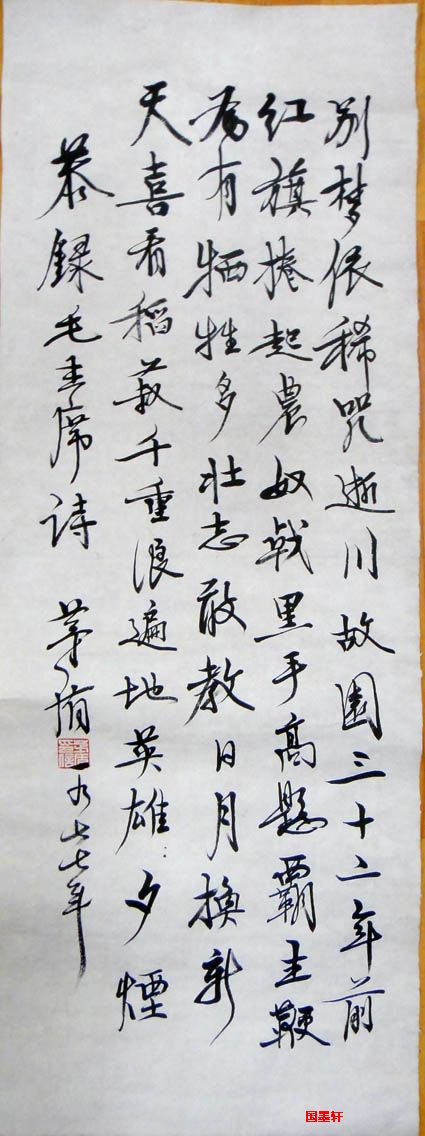 别梦依稀咒逝川故園三十二年前
红旗捲起農奴戟黑手高懸霸主鞭
为有牺牲多壮志敢教日月换新
天喜看稻菽千重浪遍地英雄夕煙
恭録毛主席诗 茅盾 一九七七年
国墨轩